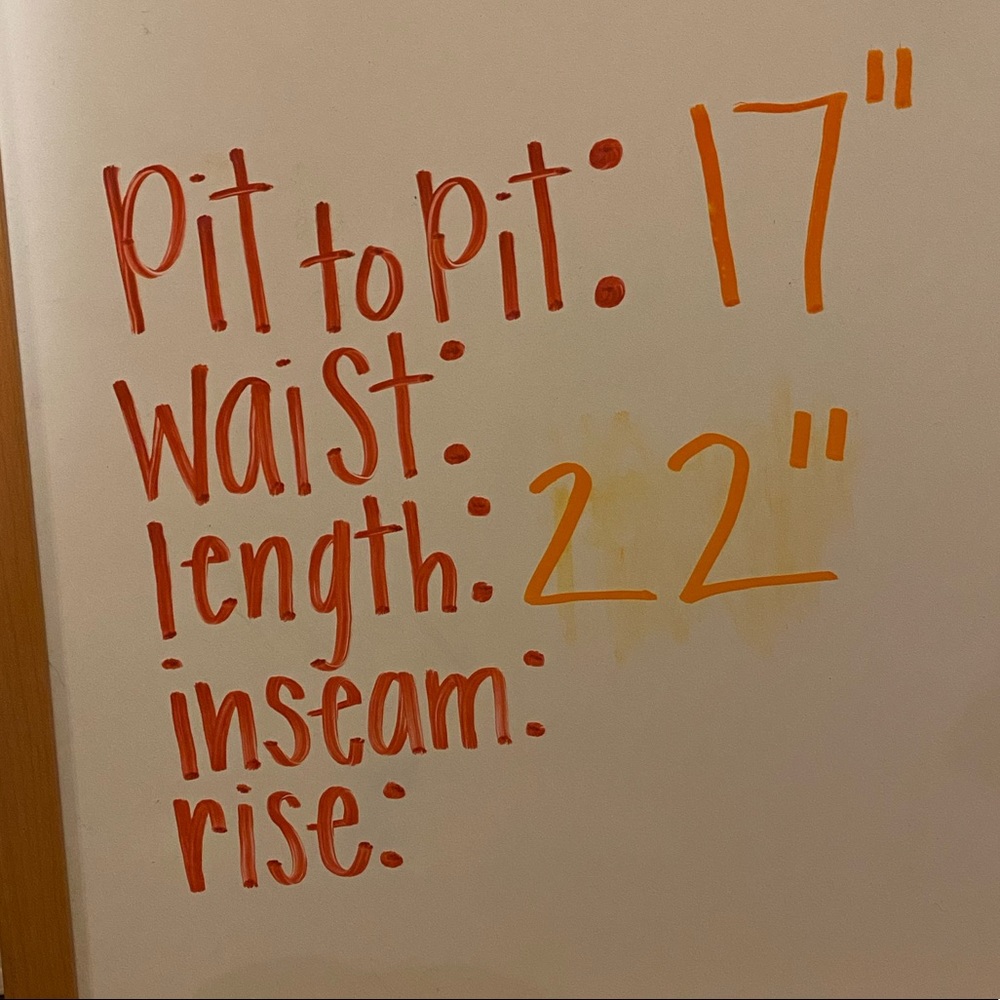 Pit to Pit: 17"
waist:
length: 22"
inseam:
rise: